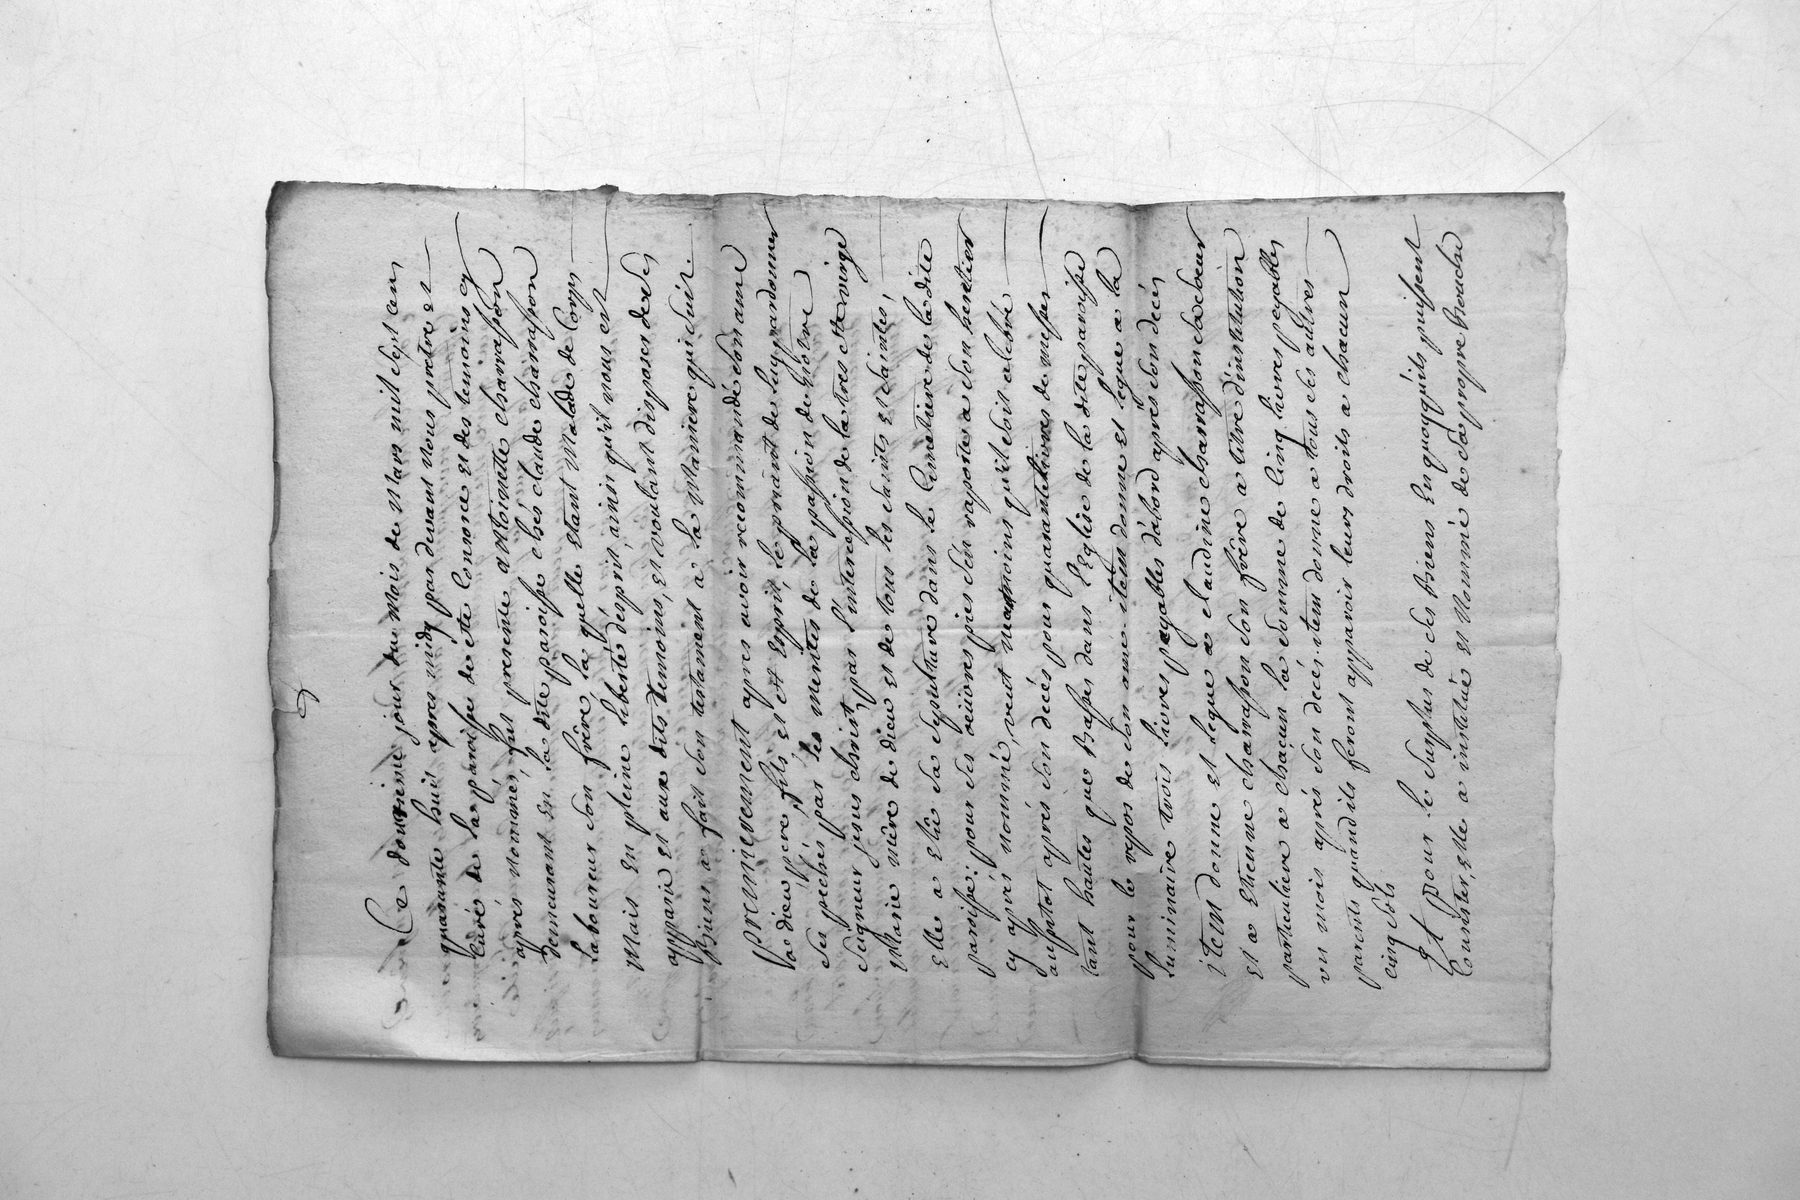 Ce douzieme jour du mois de Mars mil sept cen
quarante huit apres midy par devant Nous pretre et
Curé de la paroisse de Conore et des temoins cy
aprés nommés, fut presente Antoinette charrasson
demeurant en la dite paroisse chés claude charrasson
laboureur son frère, la quelle etant Malade de Corps
Mais en pleine liberté désprit, ainsi qu'il nous est
apparu et aux dits temoins, et voulant disposer de ses
Biens a fait son testament a la Maniere qui suit.
premierement apres avoir recommandé son ame
a dieu pere, fils et st Esprit, le priant de luy pardonner
ses pechés par les merites de la passion de Notre
Seigneur jesus christ, par l'intercession de la tres ste vierge
Marie mère de dieu et de tous les saints et saintes,
Elle a elû sa sepulture dans le Cimetiere de la dite
paroisse: pour ses œuvres pies s'en raporter a son heritier
cy aprés nommé, veut neanmoins qu'il soit celebré
aussitot aprés son decés pour quarante livres de messes
tant hautes que Basses dans l'Eglise de la dite paroisse
pour le repos de son ame. item donne et legue a la
luminaire trois livres payables d'abord aprés son decés
item donne et legue a claudine charrasson sa sœur
et a Etienne charrasson son frère a titre d'institution
particuliere a chacun la somme de cinq livres payables
un mois aprés son decés. item donne a tous ses autres
parents quand ils feront apparoir leurs droits a chacun
cinq sols
Et pour le surplus de ses Biens en quoy qu'ils puissent
Consister, Elle a institué et Nommé de sa propre bouche